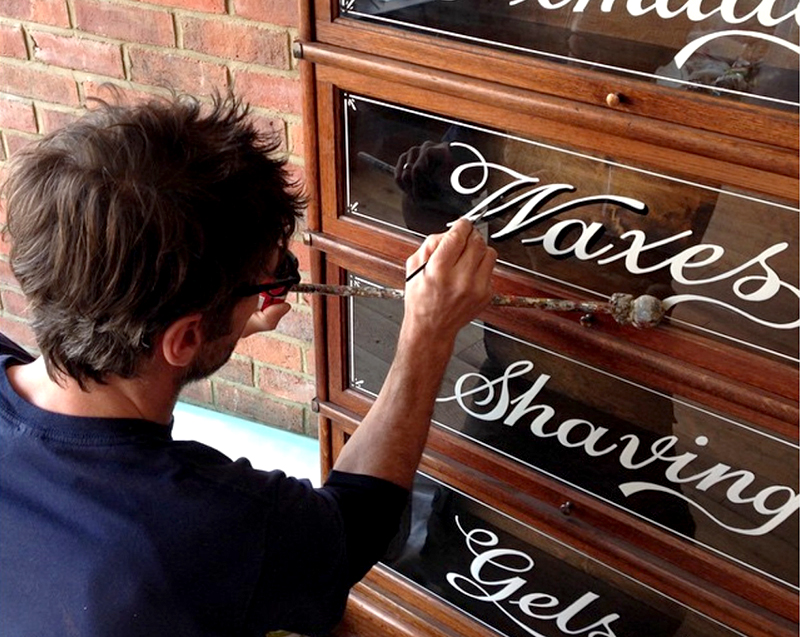 Waxes
Shaving
Gels